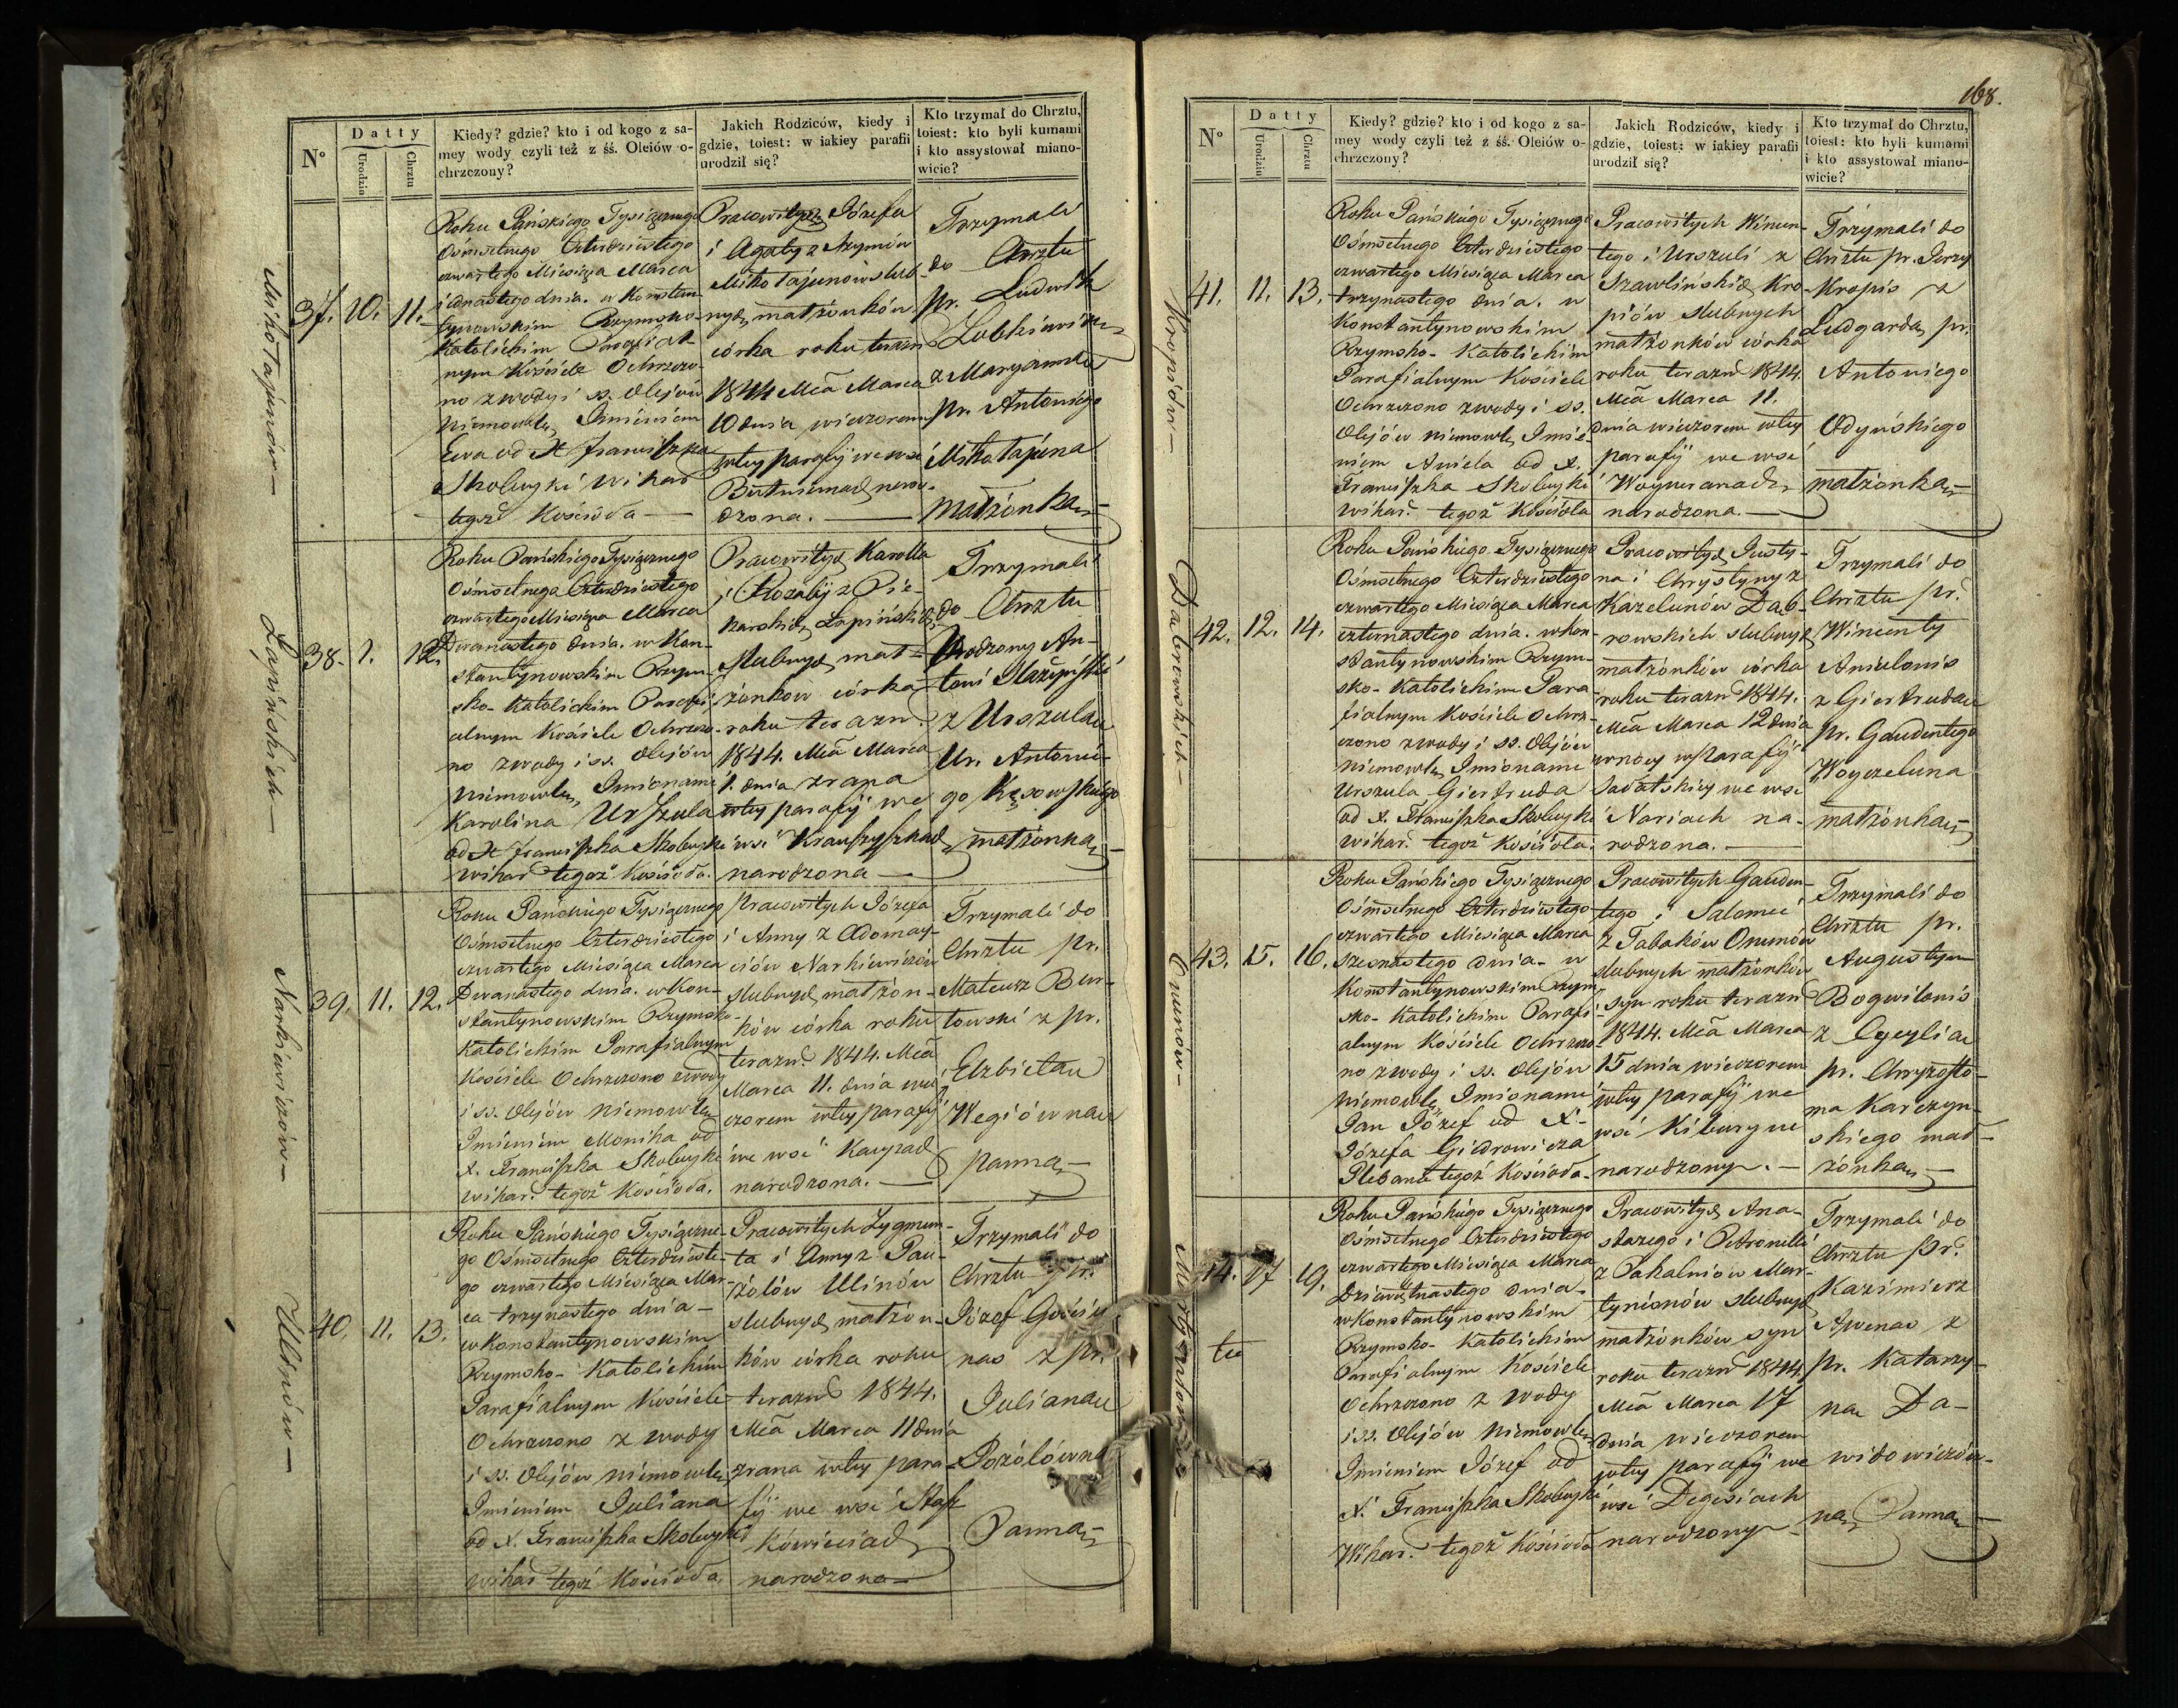 N°
Datty
Urodzin
Chrztu
Kiedy? gdzie? kto i od kogo z sa-
mey wody czyli też z śś. Oleiów o-
chrzczony?
Jakich Rodziców, kiedy i
gdzie, toiest: w iakiey parafii
urodził się?
Kto trzymał do Chrztu,
toiest: kto byli kumami
i kto assystował miano-
wicie?
Mikołajunów
37. 10. 11.
Roku Pańskiego Tysiącznego
Ośmsetnego Czterdziestego
czwartego Miesiąca Marca
iednastego dnia. w Konstan-
tynowskim Rzymsko-
Katolickim Parafial-
nym Kościele Ochrzczo-
no z wody i ss. Olejów
Niemowle, Imieniem
Ewa od X Franciszka
Skobeyki Wikar
tegoż Kościoła
Pracowitych Józefa
i Agaty z Szymów
Mikołajunów slub-
nych małżonków
córka roku terazn
1844 Mca Marca
10 dnia wieczorem
w tey parafij we wsi
narod-
zona.
Trzymali
do Chrztu
pr. Ludwik
z Maryanną
pr. Antoniego
Mikołajuna
małżonką
Łapińskich
38. 1. 12.
Roku Pańskiego Tysiącznego
Ośmsetnego Czterdziestego
czwartego Miesiąca Marca
Dwanastego dnia. w Kon-
stantynowskim Rzym-
sko-Katolickim Parafi-
alnym Kościele Ochrzczo-
no z wody i ss. Olejów
Niemowle, Imionami
Karolina Urszula
od X Franciszka Skobeyki
Wikar tegoż Kościoła.
Pracowitych Karolla
i Rozalij z Pie-
karskich Łapińskich
slubnych mał-
żonkow córka
roku terazn.
1844. Mca Marca
1. dnia z rana
w tey parafij we
wsi
narodzona
Trzymali
do Chrztu
Urodzony An-
toni
z Urszulą
Ur. Antonie-
go
małżonką
Narkiewiczów
39. 11. 12.
Roku Pańskiego Tysiącznego
Ośmsetnego Czterdziestego
czwartego Miesiąca Marca
Dwanastego dnia. w Kon-
stantynowskim Rzymsko-
Katolickim Parafialnym
Kościele Ochrzczono z wody
i ss. Olejów Niemowle
Imieniem Monika od
X. Franciszka Skobeyki
Wikar. tegoż Kościoła.
Pracowitych Józefa
i Anny z Adomay-
ciów Narkiewiczów
slubnych małżon-
ków córka roku
terazn. 1844. Mca
Marca 11. dnia wie-
czorem w tey parafij
we wsi
narodzona.
Trzymali do
Chrztu pr.
Mateusz Bur-
towski z pr.
Elzbietą
Panną
Ulinów
40. 11. 13.
Roku Pańskiego Tysiączne-
go Ośmsetnego Czterdzieste-
go czwartego Miesiąca Mar-
ca trzynastego dnia
w Konstantynowskim
Rzymsko-Katolickim
Parafialnym Kościele
Ochrzczono z wody
i ss. Olejów niemowle
Imieniem Juliana
od X. Franciszka Skobeyki
Wikar tegoż Kościoła
Pracowitych Zygmun-
ta i Anny z
Ulinów
slubnych małżon-
ków córka roku
terazn 1844.
Mca Marca 11 dnia
z rana w tey para-
fij we wsi
narodzona
Trzymali do
Chrztu pr.
Józef
z pr.
Julianą
Panną
168.
N°
Datty
Urodzin
Chrztu
Kiedy? gdzie? kto i od kogo z sa-
mey wody czyli też z śś. Oleiów o-
chrzczony?
Jakich Rodziców, kiedy i
gdzie, toiest: w iakiey parafii
urodził się?
Kto trzymał do Chrztu,
toiest: kto byli kumami
i kto assystował miano-
wicie?
Kropiów
41. 11. 13.
Roku Pańskiego Tysiącznego
Ośmsetnego Czterdziestego
czwartego Miesiąca Marca
trzynastego dnia. w
Konstantynowskim
Rzymsko-Katolickim
Parafialnym Kościele
Ochrzczono z wody i ss.
Olejów niemowle Imie-
niem Aniela od X.
Franciszka Skobeyki
Wikar. tegoż Kościoła
Pracowitych Wincen-
tego i Urszuli z
Szawlińskich Kro-
piów slubnych
małżonków córka
roku terazn 1844.
Mca Marca 11.
dnia wieczorem w tey
parafij we wsi
narodzona.
Trzymali do
Chrztu pr. Jerzy
Kropis z
Ludgardą pr.
Antoniego
Odyńskiego
małżonką
Dąbrowskich
42. 12. 14.
Roku Pańskiego Tysiącznego
Ośmsetnego Czterdziestego
czwartego Miesiąca Marca
czternastego dnia. w Kon-
stantynowskim Rzym-
sko-Katolickim Para-
fialnym Kościele Ochrz-
czono z wody i ss. Olejów
Niemowle Imionami
Urszula Giertruda
od X. Franciszka Skobeyki
Wikar. tegoż Kościoła.
Pracowitych Justy-
na i Chrystyny z
Kazelunów Dąb-
rowskich slubnych
małżonków córka
roku terazn 1844.
Mca Marca 12 dnia
w nocy w Parafij
we wsi
Nariach na-
rodzona.
Trzymali do
Chrztu pr.
Wincenty
Anielonis
z Giertrudą
pr. Gaudentego
Woyzeluna
małżonką
Orunów
43. 15. 16.
Roku Pańskiego Tysiącznego
Ośmsetnego Czterdziestego
czwartego Miesiąca Marca
szesnastego dnia. w
Konstantynowskim Rzym-
sko-Katolickim Parafi-
alnym Kościele Ochrzczo-
no z wody i ss. Olejów
Niemowle Imionami
Jan Józef od X.
Józefa Giedrowicza
Plebana tegoż Kościoła.
Pracowitych Gauden-
tego i Salomei
z Tabaków Orunów
slubnych małżonków
syn roku terazn
1844. Mca Marca
15 dnia wieczorem
w tey parafij we
wsi
narodzony.
Trzymali do
Chrztu pr.
Augustyn
Bogwilonis
z Cycylią
pr. Chryzosto-
ma Karczyn-
skiego mał-
żonką
Martynionów
44. 17 19.
te
Roku Pańskiego Tysiącznego
Ośmsetnego Czterdziestego
czwartego Miesiąca Marca
Dziewiętnastego dnia.
w Konstantynowskim
Rzymsko-Katolickim
Parafialnym Kościele
Ochrzczono z wody
i ss. Olejów Niemowle
Imieniem Józef od
X. Franciszka Skobeyki
Wikar. tegoż Kościoła
Pracowitych Ana-
stazego i Petronelli
z Pakalniow Mar-
tynionów slubnych
małżonków syn
roku terazn 1844.
Mca Marca 17
dnia wieczorem
w tey parafij we
wsi Degesiach
narodzony
Trzymali do
Chrztu pr.
Kazimierz
z
pr. Katarzy-
ną Da-
widowiczów-
ną Panną